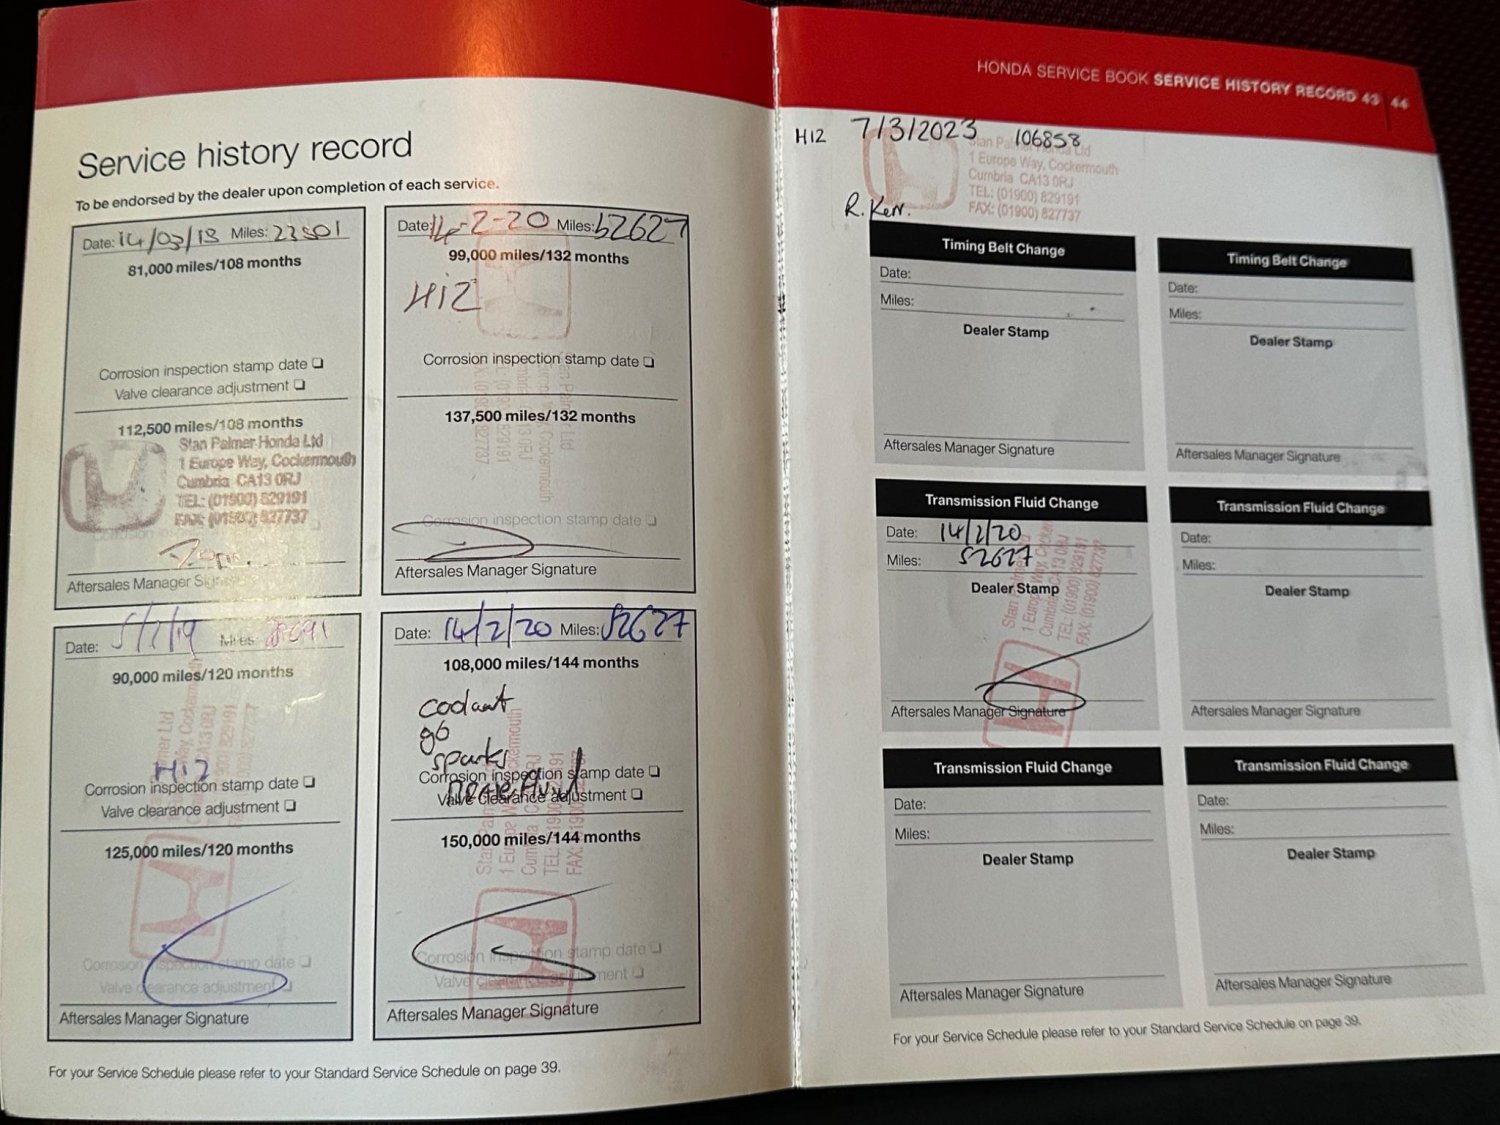 Service history record
To be endorsed by the dealer upon completion of each service.
Date: 14/03/18 Miles: 23801
81,000 miles/108 months
Corrosion inspection stamp date ❑
Valve clearance adjustment ❑
112,500 miles/108 months
Stan Palmer Honda Ltd
1 Europe Way, Cockermouth
Cumbria CA13 0RJ
TEL: (01900) 829191
FAX: (01900) 827737
Aftersales Manager Signature
Date: 14-2-20 Miles: 52627
99,000 miles/132 months
H12
Corrosion inspection stamp date ❑
137,500 miles/132 months
Corrosion inspection stamp date ❑
Aftersales Manager Signature
Date: 5/2/19 Miles:
90,000 miles/120 months
H12
Corrosion inspection stamp date ❑
Valve clearance adjustment ❑
125,000 miles/120 months
Corrosion inspection stamp date ❑
Valve clearance adjustment ❑
Aftersales Manager Signature
Date: 14/2/20 Miles: 52627
108,000 miles/144 months
coolant
sparks
Corrosion inspection stamp date ❑
Valve clearance adjustment ❑
150,000 miles/144 months
Corrosion inspection stamp date ❑
Valve clearance adjustment ❑
Aftersales Manager Signature
For your Service Schedule please refer to your Standard Service Schedule on page 39.
HONDA SERVICE BOOK SERVICE HISTORY RECORD 43 | 44
H12 7/3/2023 106858
Stan Palmer Honda Ltd
1 Europe Way, Cockermouth
Cumbria CA13 0RJ
TEL: (01900) 829191
FAX: (01900) 827737
R. Kerr.
Timing Belt Change
Date:
Miles:
Dealer Stamp
Aftersales Manager Signature
Timing Belt Change
Date:
Miles:
Dealer Stamp
Aftersales Manager Signature
Transmission Fluid Change
Date: 14/2/20
Miles: 52627
Dealer Stamp
Aftersales Manager Signature
Transmission Fluid Change
Date:
Miles:
Dealer Stamp
Aftersales Manager Signature
Transmission Fluid Change
Date:
Miles:
Dealer Stamp
Aftersales Manager Signature
Transmission Fluid Change
Date:
Miles:
Dealer Stamp
Aftersales Manager Signature
For your Service Schedule please refer to your Standard Service Schedule on page 39.